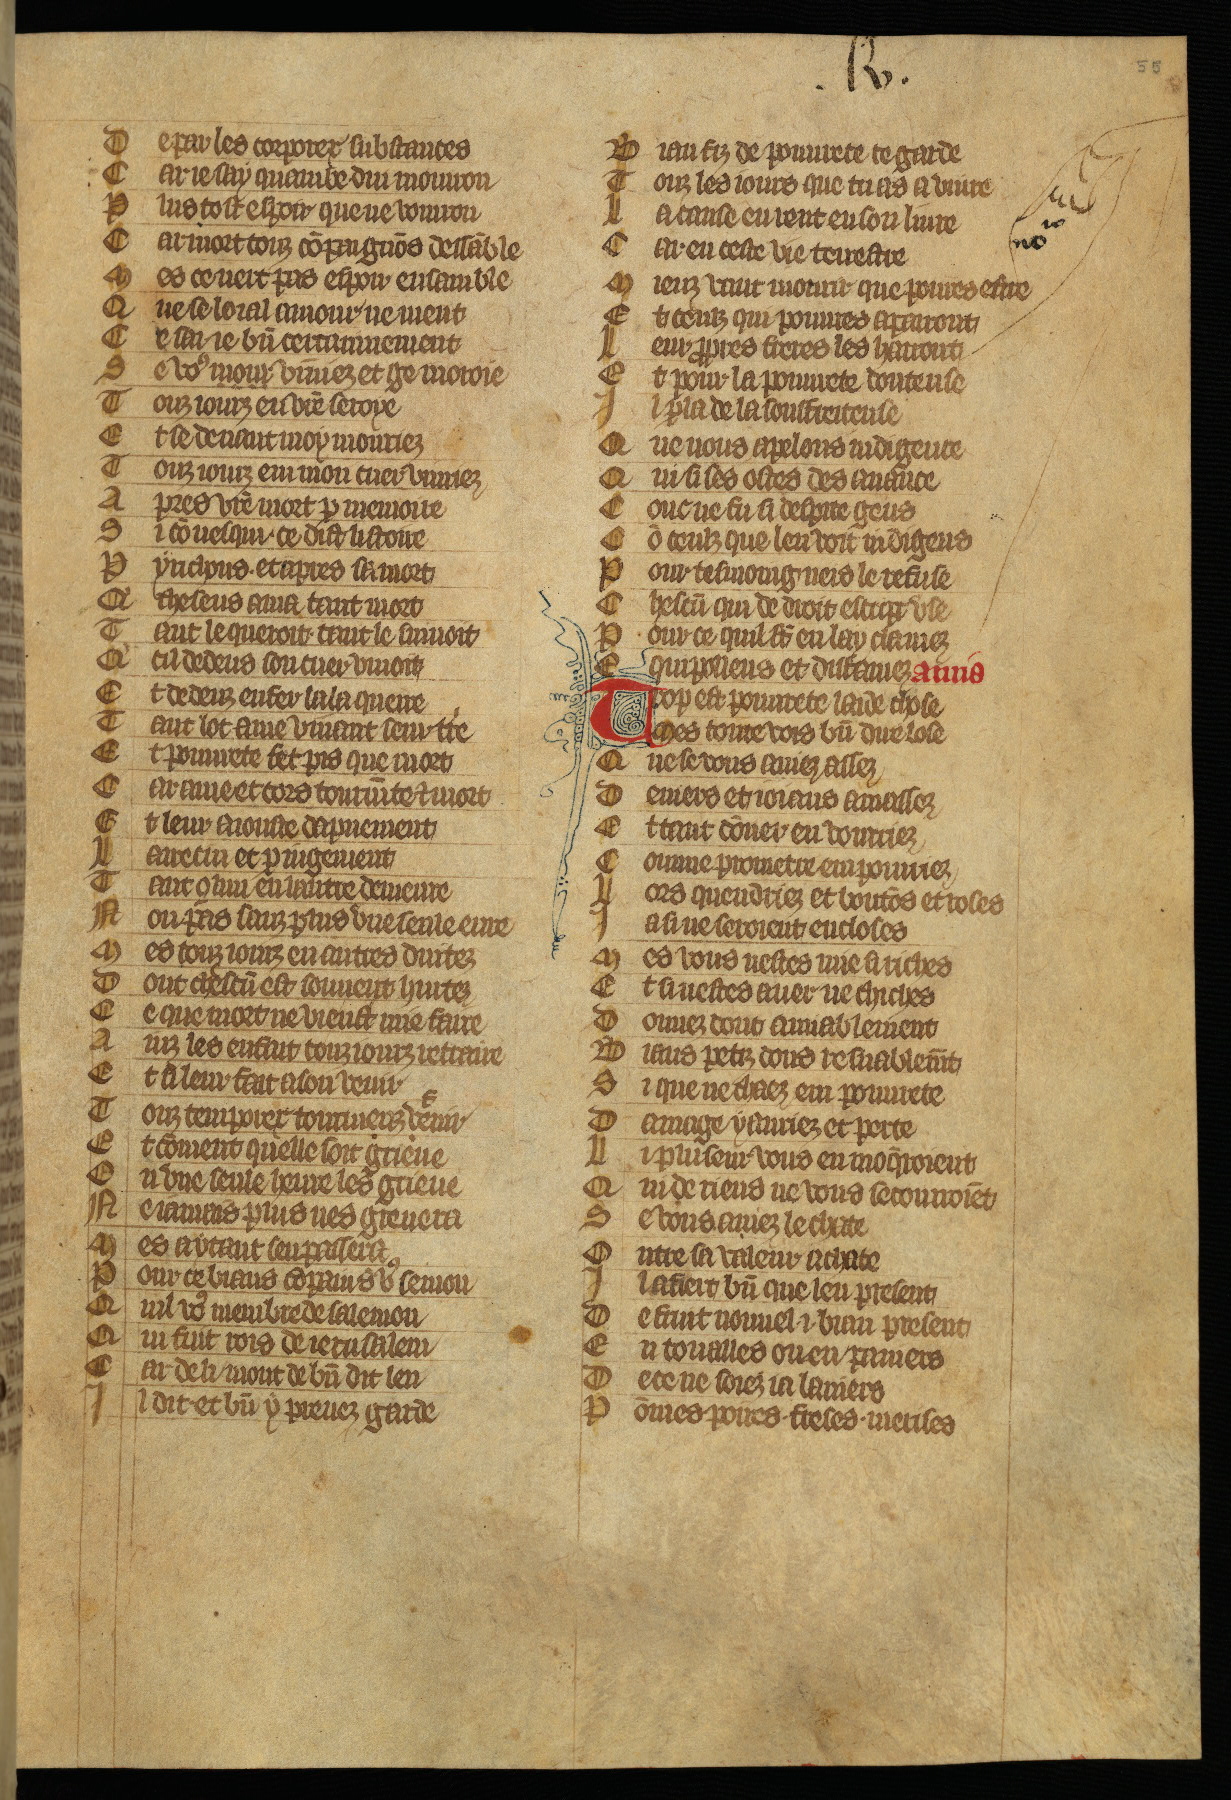 .R.
55
D epar les corporex substances
C ar ie say quambe dui mourron
P lus tost espoir que ne vourron
C ar mort touz cōpaignōs dessāble
M es ce nert pas espoir ensamble
Q ue se loial amour ne ment
C e sai ie bn̄ certainnement
S e voꝰ mour viuiez et ge moroie
T ouz iourz en vr̄e seroye
E t se deuant moy mouriez
T ouz iourz em mon cuer viuriez
A pres vr̄e mort p memoire
S i cō uesqui ce dist listoire
P ỳnchous et apres sa mort
Q theseus ama tant mort
T ant le queroit tant le siuoit
Q cil dedens son cuer viuoit
E t dedenz enfer lala querre
T ant lot ame viuant seur tr̄e
E t pourete fet pis que mort
C ar ame et cors tourmēte & mort
E t leur aiouste dapnement
L arrecin et p iugement
T ant q̄ lun en lautre demeure
N on pas sanz plus vne seule eure
M es touz iourz en autres durtez
D ont chescū est souuent hurtez
C e que mort ne vienst mie faire
A inz les enfait touz iourz retraire
E t si leur fait a son venir
T ouz temporex tourmenz defenir
E t cōment quelle soit grieue
E n vne seule heure les grieue
N e iamais plus nes greuera
M es aỳtant sen passera
P our ce biaus cōpains voꝰ semon
Q uil voꝰ membre de salemon
Q ui fuit rois de ierusalem
C ar de li mont de bn̄ dit len
I l dit et bn̄ ỳ prenez garde
B iau filz de pourete te garde
T ouz les iours que tu as a viure
L a cause en rent en son liure
C ar en ceste vie terrestre
M ieuz vaut mourir que poures estre
E t ceulz qui poures aparront
L eur ppres freres les harront
E t pour la pourete douteuse
I l pla de la souffreteuse
Q ue nous apelons indigence
Q ui si ses ostes des auance
C onc ne fu si despite gens
C ō ceulz que len voit indigens
P our tesmoing neis le refuse
C hescū qui de droit escript vse
P our ce quil sōt en lay clamez
E quipollens et diffamez amis
T rop est pourete laide chose
M es toute vois bn̄ dire lose
Q ue se vous auiez assez
D eniers et ioiaus amassez
E t tant dōner en vourriez
C omme prometre em pourriez
L ors queudriez et boutōs et roses
I a si ne seroient encloses
M es vous nestes mie si riches
E t si nestes auer ne chiches
D onnez dont amiablement
B iaus petiz dons resnablem̄t
S i que ne chaez em pourete
D amage ỳ auriez et perte
L i pluseur vous en moq̄roient
Q ui de riens ne vous secourroiēt
S e vous auiez le chate
O utre sa valeur achate
I l afiert bn̄ que len present
D e fruit nouuel .i. biau present
E n touailles ou en paniers
D e ce ne soiez ia laniers
P ōmes poires freses merises